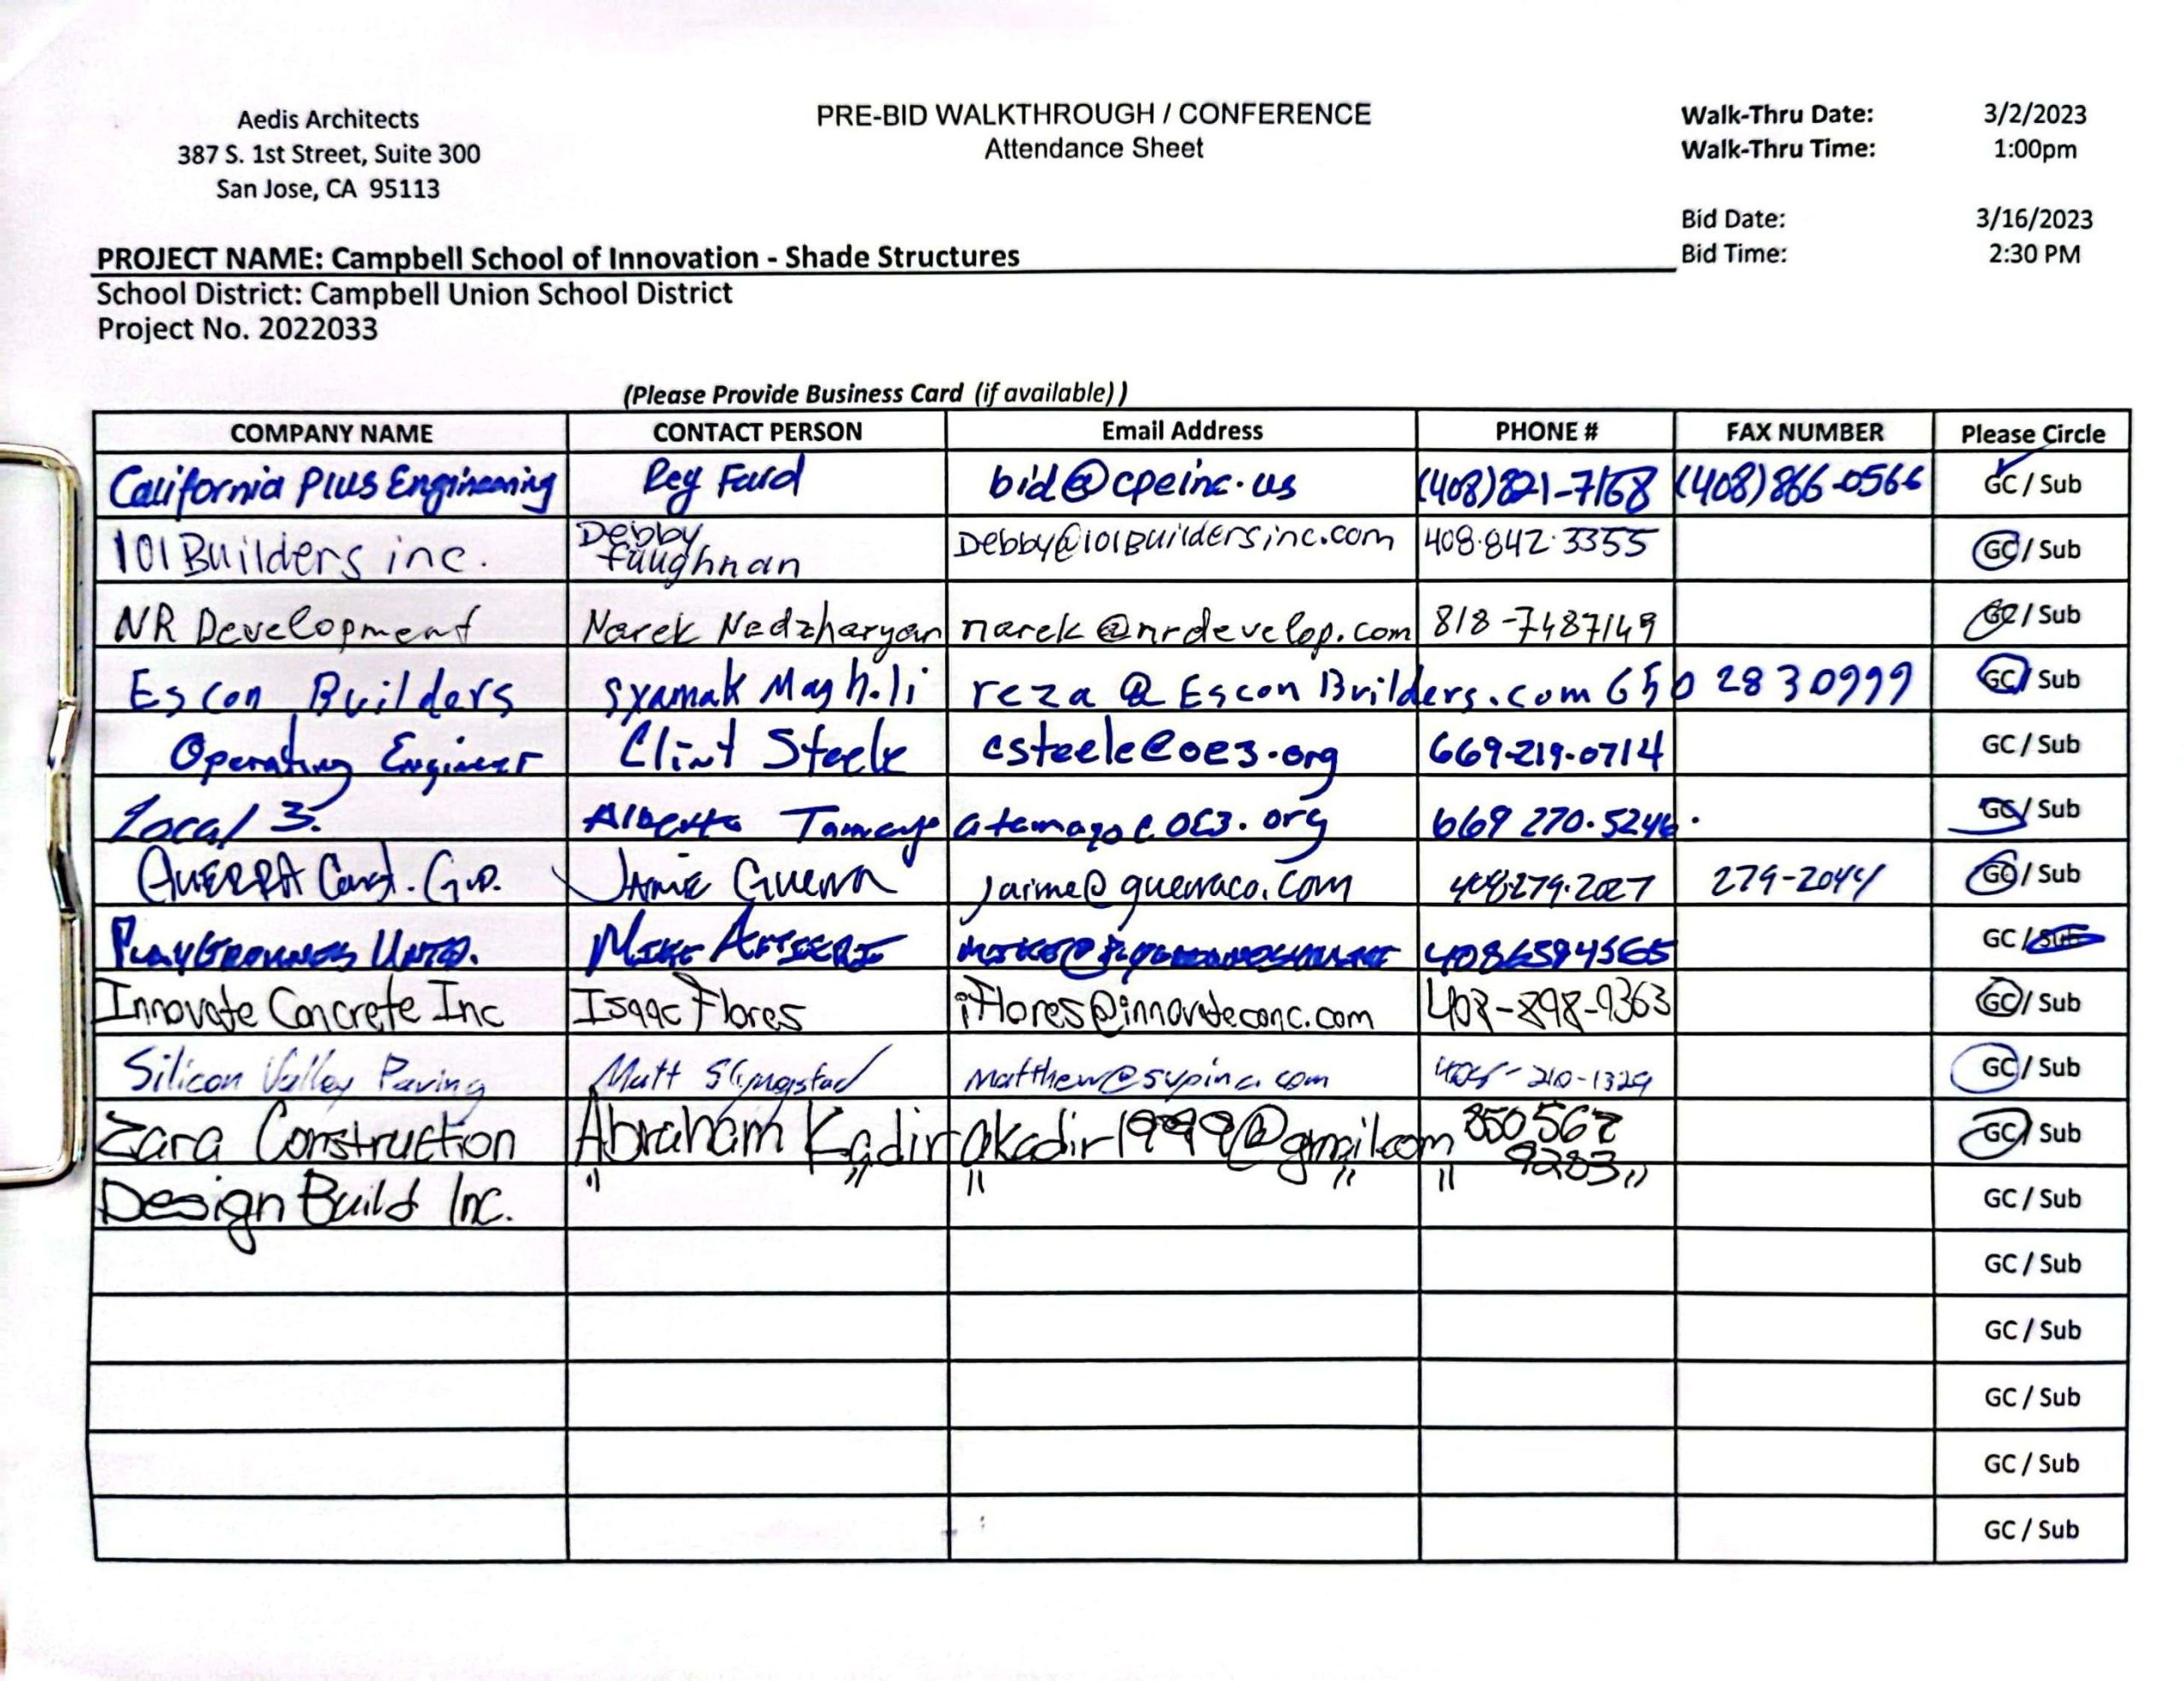 Aedis Architects
387 S. 1st Street, Suite 300
San Jose, CA 95113
PRE-BID WALKTHROUGH / CONFERENCE
Attendance Sheet
Walk-Thru Date: 3/2/2023
Walk-Thru Time: 1:00pm
Bid Date: 3/16/2023
Bid Time: 2:30 PM
PROJECT NAME: Campbell School of Innovation - Shade Structures
School District: Campbell Union School District
Project No. 2022033
(Please Provide Business Card (if available) )
COMPANY NAME CONTACT PERSON Email Address PHONE # FAX NUMBER Please Circle
California Plus Engineering Rey Fard bid@cpeinc.us (408)821-7168 (408)866-0566 GC / Sub
101 Builders inc. Debby Faughnan Debby@101Buildersinc.com 408.842.3355 GC / Sub
NR Development Narek Nedzharyan narek@nrdevelop.com 818-7487149 GC / Sub
Escon Builders Syamak Magholi reza @ EsconBuilders.com 650 2830999 GC / Sub
Operating Engineer Clint Steele csteele@oe3.org 669-219-0714 GC / Sub
Local 3. Alberto Tamayo atamayo@oe3.org 669 270.5246. GC / Sub
GUERRA Const. Grp. Jaime Guerra jaime@guerraco.com 408.279.2027 279-2044 GC / Sub
PlayGrounds Mike 4086594565 GC / Sub
Innovate Concrete Inc Isaac Flores iFlores@innovateconc.com 408-898-9363 GC / Sub
Silicon Valley Paving Matt Slyngstad Matthew@svpinc.com 408-210-1329 GC / Sub
Zara Construction Abraham Kadir akadir1999@gmail.com 850 567 9283 GC / Sub
Design Build Inc. " " " " " " GC / Sub
GC / Sub
GC / Sub
GC / Sub
GC / Sub
GC / Sub